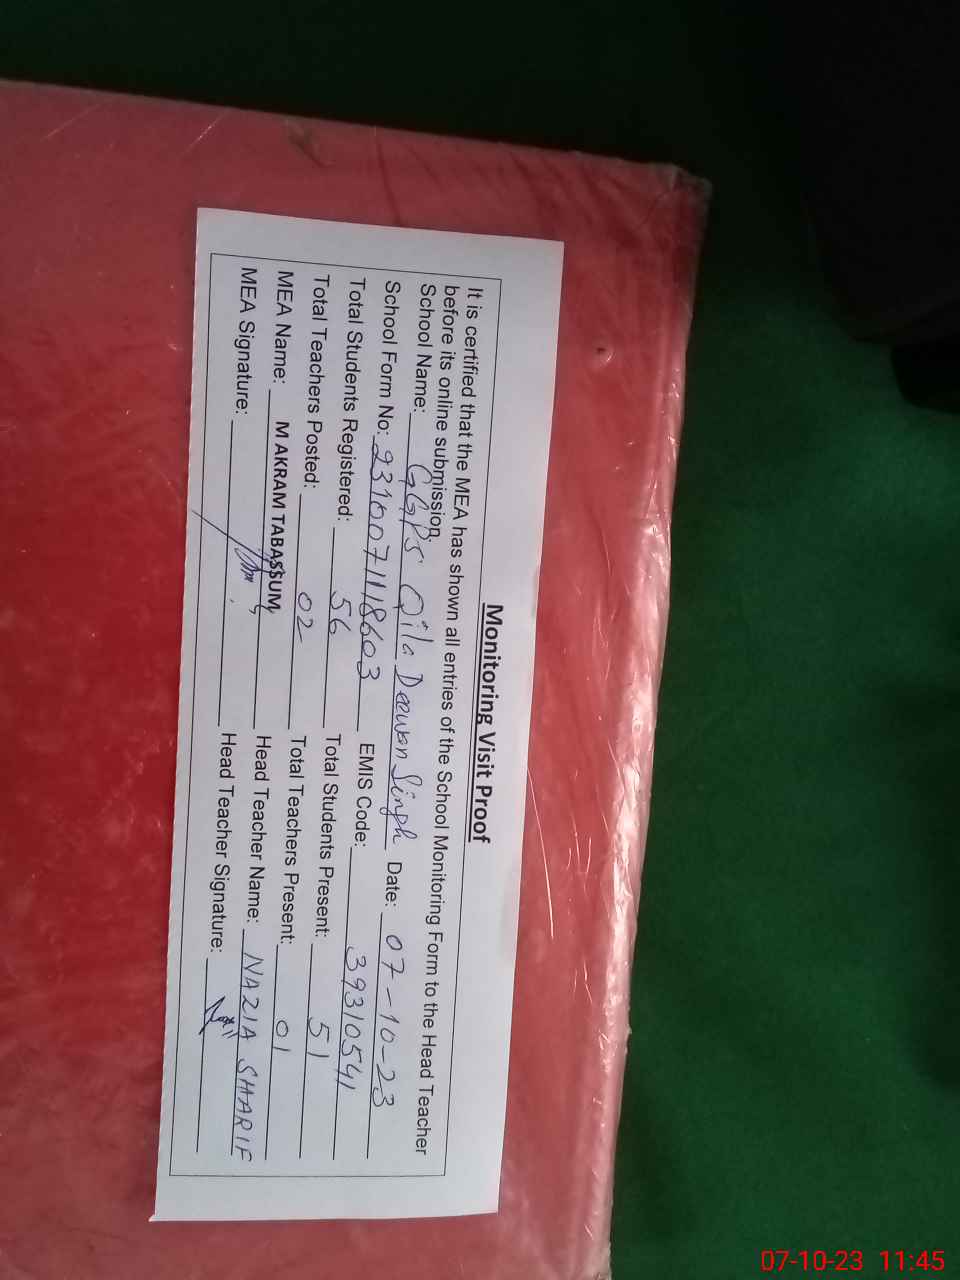 Monitoring Visit Proof
It is certified that the MEA has shown all entries of the School Monitoring Form to the Head Teacher
before its online submission.
School Name: GGPS Qila Deewan Singh Date: 07-10-23
School Form No: 231007118603 EMIS Code: 39310541
Total Students Registered: 56 Total Students Present: 51
Total Teachers Posted: 02 Total Teachers Present: 01
MEA Name: M AKRAM TABASSUM Head Teacher Name: NAZIA SHARIF
MEA Signature: Head Teacher Signature:
07-10-23 11:45